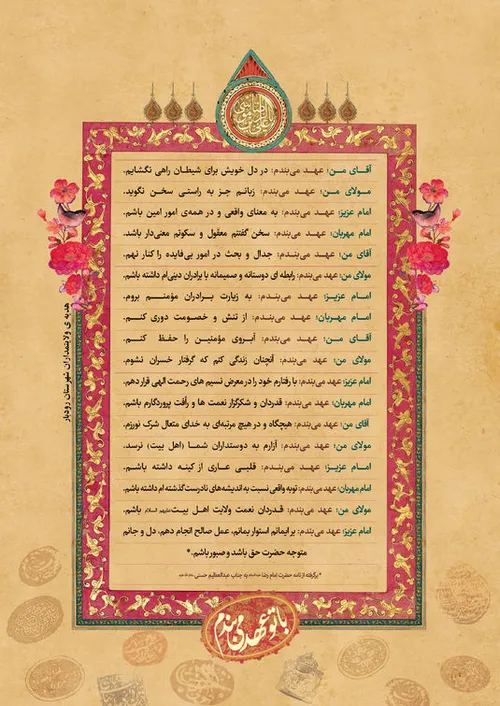 آقـای مــن؛ عهـد می‌بندم: در دل خویش برای شیطان راهی نگشایم.
مـولای من؛ عهد می‌بندم: زبانم جز به راستی سخن نگوید.
امام عزیز؛ عهد می‌بندم: به معنای واقعی و در همه‌ی امور امین باشم.
امام مهربان؛ عهد می‌بندم: سخن گفتنم معقول و سکوتم معنی‌دار باشد.
آقای من؛ عهد می‌بندم: جدال و بحث در امور بی‌فایده را کنار نهم.
مولای من؛ عهد می‌بندم: رابطه ای دوستانه و صمیمانه با برادران دینی‌ام داشته باشم.
امـام عزیـز؛ عهد می‌بندم: به زیارت بـرادران مؤمنــم بروم.
امـام مهـربان؛ عهد می‌بندم: از تنش و خصومت دوری کنـم.
آقـای مـن؛ عهد می‌بندم: آبـروی مؤمنین را حفظ کنـم.
مولای من؛ عهد می‌بندم: آنچنان زندگی کنم که گرفتار خسران نشوم.
امام عزیز؛ عهد می‌بندم: با رفتارم خود را در معرض نسیم های رحمت الهی قرار دهم.
امام مهربان؛ عهد می‌بندم: قدردان و شکرگزار نعمت ها و رأفت پروردگارم باشم.
آقای من؛ عهد می‌بندم: هیچگاه و در هیچ مرتبه‌ای به خدای متعال شرک نورزم.
مولای من؛ عهد می‌بندم: آزارم به دوستداران شما (اهل بیت) نرسد.
امـام عزیـز؛ عهد می‌بندم: قلبـی عـاری از کینه داشته باشـم.
امام مهربان؛ عهد می‌بندم: توبه واقعی نسبت به اندیشه‌های نادرست گذشته ام داشته باشم.
مولای من؛ عهد می‌بندم: قـدردان نعمت ولایت اهـل بیـت علیهم السلام باشم.
امام عزیز؛ عهد می‌بندم: بر ایمانم استوار بمانم، عمل صالح انجام دهم، دل و جانم
متوجه حضرت حق باشد و صبور باشم.*
*برگرفته از نامه حضرت امام رضا به جناب عبدالعظیم حسنی
با تو عهد می‌بندم
هدیه ی ولایتمداران شهرستان رودبار